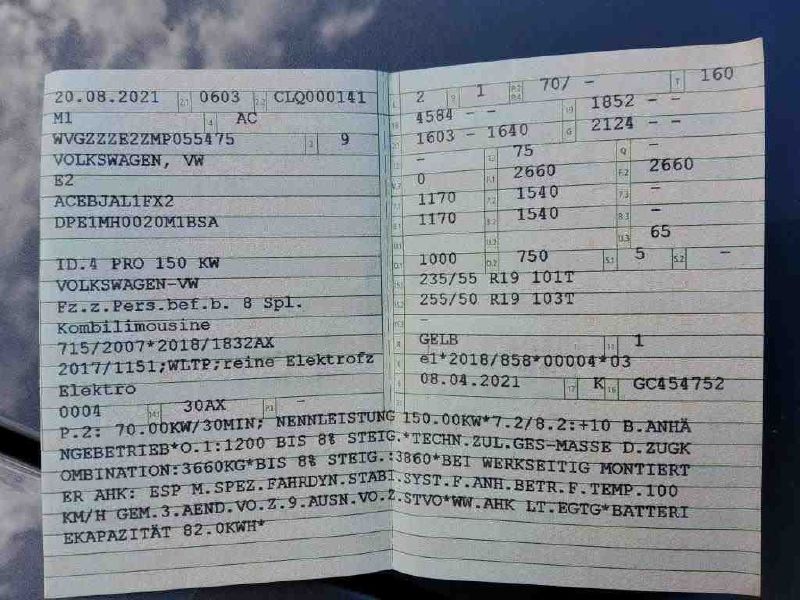 20.08.2021 2.1 0603 2.2 CLQ000141
M1 4 AC
WVGZZZE2ZMP055475 3 9
VOLKSWAGEN, VW
E2
ACEBJAL1FX2
DPE1MH0020M1BSA
ID.4 PRO 150 KW
VOLKSWAGEN-VW
Fz.z.Pers.bef.b. 8 Spl.
Kombilimousine
715/2007*2018/1832AX
2017/1151;WLTP;reine Elektrofz
Elektro
0004 14.1 30AX P.1 -
L 2 9 1 P.2 P.4 70/ - T 160
18 4584 - - 19 1852 - -
20 1603 - 1640 G 2124 - -
- 75 Q -
0 F.1 2660 F.2 2660
7.1 1170 7.2 1540 7.3 -
8.1 1170 8.2 1540 8.3 -
U.1 U.2 U.3 65
O.1 1000 O.2 750 S.1 5 S.2 -
235/55 R19 101T
255/50 R19 103T
-
R GELB 11 1
K e1*2018/858*00004*03
6 08.04.2021 17 K 16 GC454752
P.2: 70.00KW/30MIN; NENNLEISTUNG 150.00KW*7.2/8.2:+10 B.ANHÄ
NGEBETRIEB*O.1:1200 BIS 8% STEIG.*TECHN.ZUL.GES-MASSE D.ZUGK
OMBINATION:3660KG*BIS 8% STEIG.:3860*BEI WERKSEITIG MONTIERT
ER AHK: ESP M.SPEZ.FAHRDYN.STABI.SYST.F.ANH.BETR.F.TEMP.100
KM/H GEM.3.AEND.VO.Z.9.AUSN.VO.Z.STVO*WW.AHK LT.EGTG*BATTERI
EKAPAZITÄT 82.0KWH*